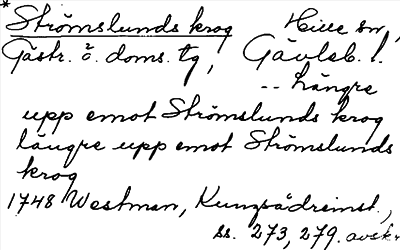 * Strömslunds krog Hille sn,
Gästr. ö. doms. tg, Gävleb. l.
-- längre
upp emot Strömslunds krog
längre upp emot Strömslunds
krog
1748 Westman, Kungsådreinst.,
ss. 273, 279. avskr.